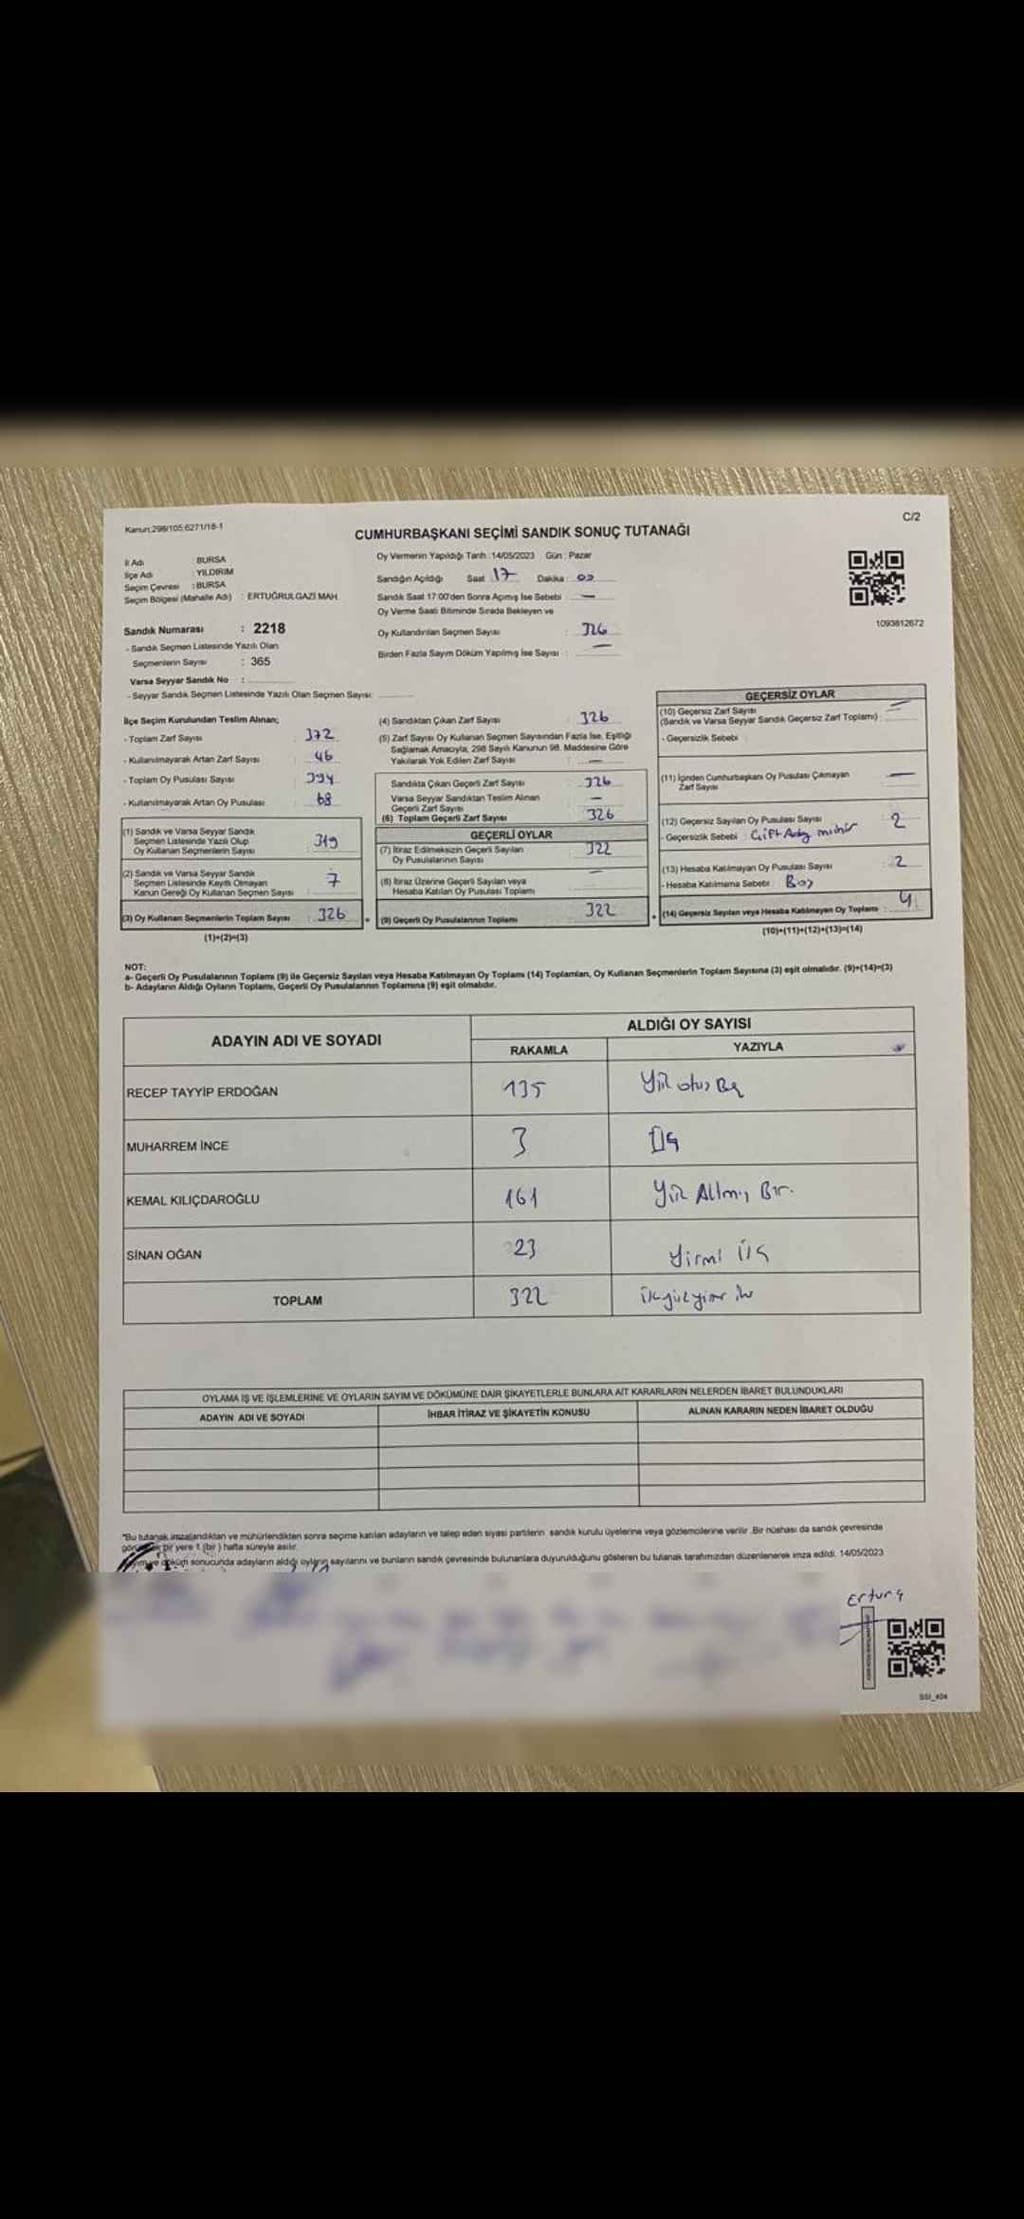 Kanun:298/105;6271/18-1
C/2
CUMHURBAŞKANI SEÇİMİ SANDIK SONUÇ TUTANAĞI
İl Adı : BURSA
İlçe Adı : YILDIRIM
Seçim Çevresi : BURSA
Seçim Bölgesi (Mahalle Adı) : ERTUĞRULGAZİ MAH.
Sandık Numarası : 2218
- Sandık Seçmen Listesinde Yazılı Olan
Seçmenlerin Sayısı : 365
Varsa Seyyar Sandık No :
- Seyyar Sandık Seçmen Listesinde Yazılı Olan Seçmen Sayısı:
Oy Vermenin Yapıldığı Tarih :14/05/2023 Gün : Pazar
Sandığın Açıldığı Saat 17 Dakika :
Sandık Saat 17:00'den Sonra Açılmış İse Sebebi : —
Oy Verme Saati Bitiminde Sırada Bekleyen ve
Oy Kullandırılan Seçmen Sayısı : 326
Birden Fazla Sayım Döküm Yapılmış İse Sayısı : —
1093812672
İlçe Seçim Kurulundan Teslim Alınan;
- Toplam Zarf Sayısı : 372
- Kullanılmayarak Artan Zarf Sayısı : 46
- Toplam Oy Pusulası Sayısı : 394
- Kullanılmayarak Artan Oy Pusulası : 68
(1) Sandık ve Varsa Seyyar Sandık
Seçmen Listesinde Yazılı Olup
Oy Kullanan Seçmenlerin Sayısı : 319
(2) Sandık ve Varsa Seyyar Sandık
Seçmen Listesinde Kayıtlı Olmayan
Kanun Gereği Oy Kullanan Seçmen Sayısı : 7
(3) Oy Kullanan Seçmenlerin Toplam Sayısı : 326
(1)+(2)=(3)
(4) Sandıktan Çıkan Zarf Sayısı : 326
(5) Zarf Sayısı Oy Kullanan Seçmen Sayısından Fazla İse, Eşitliği
Sağlamak Amacıyla, 298 Sayılı Kanunun 98. Maddesine Göre
Yakılarak Yok Edilen Zarf Sayısı : —
Sandıkta Çıkan Geçerli Zarf Sayısı : 326
Varsa Seyyar Sandıktan Teslim Alınan
Geçerli Zarf Sayısı : —
(6) Toplam Geçerli Zarf Sayısı : 326
GEÇERLİ OYLAR
(7) İtiraz Edilmeksizin Geçerli Sayılan
Oy Pusulalarının Sayısı : 322
(8) İtiraz Üzerine Geçerli Sayılan veya
Hesaba Katılan Oy Pusulası Toplamı : —
(9) Geçerli Oy Pusulalarının Toplamı : 322
GEÇERSİZ OYLAR
(10) Geçersiz Zarf Sayısı
(Sandık ve Varsa Seyyar Sandık Geçersiz Zarf Toplamı) : —
- Geçersizlik Sebebi :
(11) İçinden Cumhurbaşkanı Oy Pusulası Çıkmayan
Zarf Sayısı : —
(12) Geçersiz Sayılan Oy Pusulası Sayısı : 2
- Geçersizlik Sebebi : Çift Aday mühür
(13) Hesaba Katılmayan Oy Pusulası Sayısı : 2
- Hesaba Katılmama Sebebi : Boş
(14) Geçersiz Sayılan veya Hesaba Katılmayan Oy Toplamı : 4
(10)+(11)+(12)+(13)=(14)
NOT:
a- Geçerli Oy Pusulalarının Toplamı (9) ile Geçersiz Sayılan veya Hesaba Katılmayan Oy Toplamı (14) Toplamları, Oy Kullanan Seçmenlerin Toplam Sayısına (3) eşit olmalıdır. (9)+(14)=(3)
b- Adayların Aldığı Oyların Toplamı, Geçerli Oy Pusulalarının Toplamına (9) eşit olmalıdır.
ADAYIN ADI VE SOYADI
ALDIĞI OY SAYISI
RAKAMLA YAZIYLA
RECEP TAYYİP ERDOĞAN 135 Yüz otuz Beş
MUHARREM İNCE 3 Üç
KEMAL KILIÇDAROĞLU 161 Yüz Altmış Bir.
SİNAN OĞAN 23 Yirmi Üç
TOPLAM 322
OYLAMA İŞ VE İŞLEMLERİNE VE OYLARIN SAYIM VE DÖKÜMÜNE DAİR ŞİKAYETLERLE BUNLARA AİT KARARLARIN NELERDEN İBARET BULUNDUKLARI
ADAYIN ADI VE SOYADI İHBAR İTİRAZ VE ŞİKAYETİN KONUSU ALINAN KARARIN NEDEN İBARET OLDUĞU
*Bu tutanak imzalandıktan ve mühürlendikten sonra seçime katılan adayların ve talep eden siyasi partilerin sandık kurulu üyelerine veya gözlemcilerine verilir. Bir nüshası da sandık çevresinde
bir yere 1 (bir) hafta süreyle asılır.
ve döküm sonucunda adayların aldığı oyların sayılarını ve bunların sandık çevresinde bulunanlara duyurulduğunu gösteren bu tutanak tarafımızdan düzenlenerek imza edildi. 14/05/2023
SSI_404